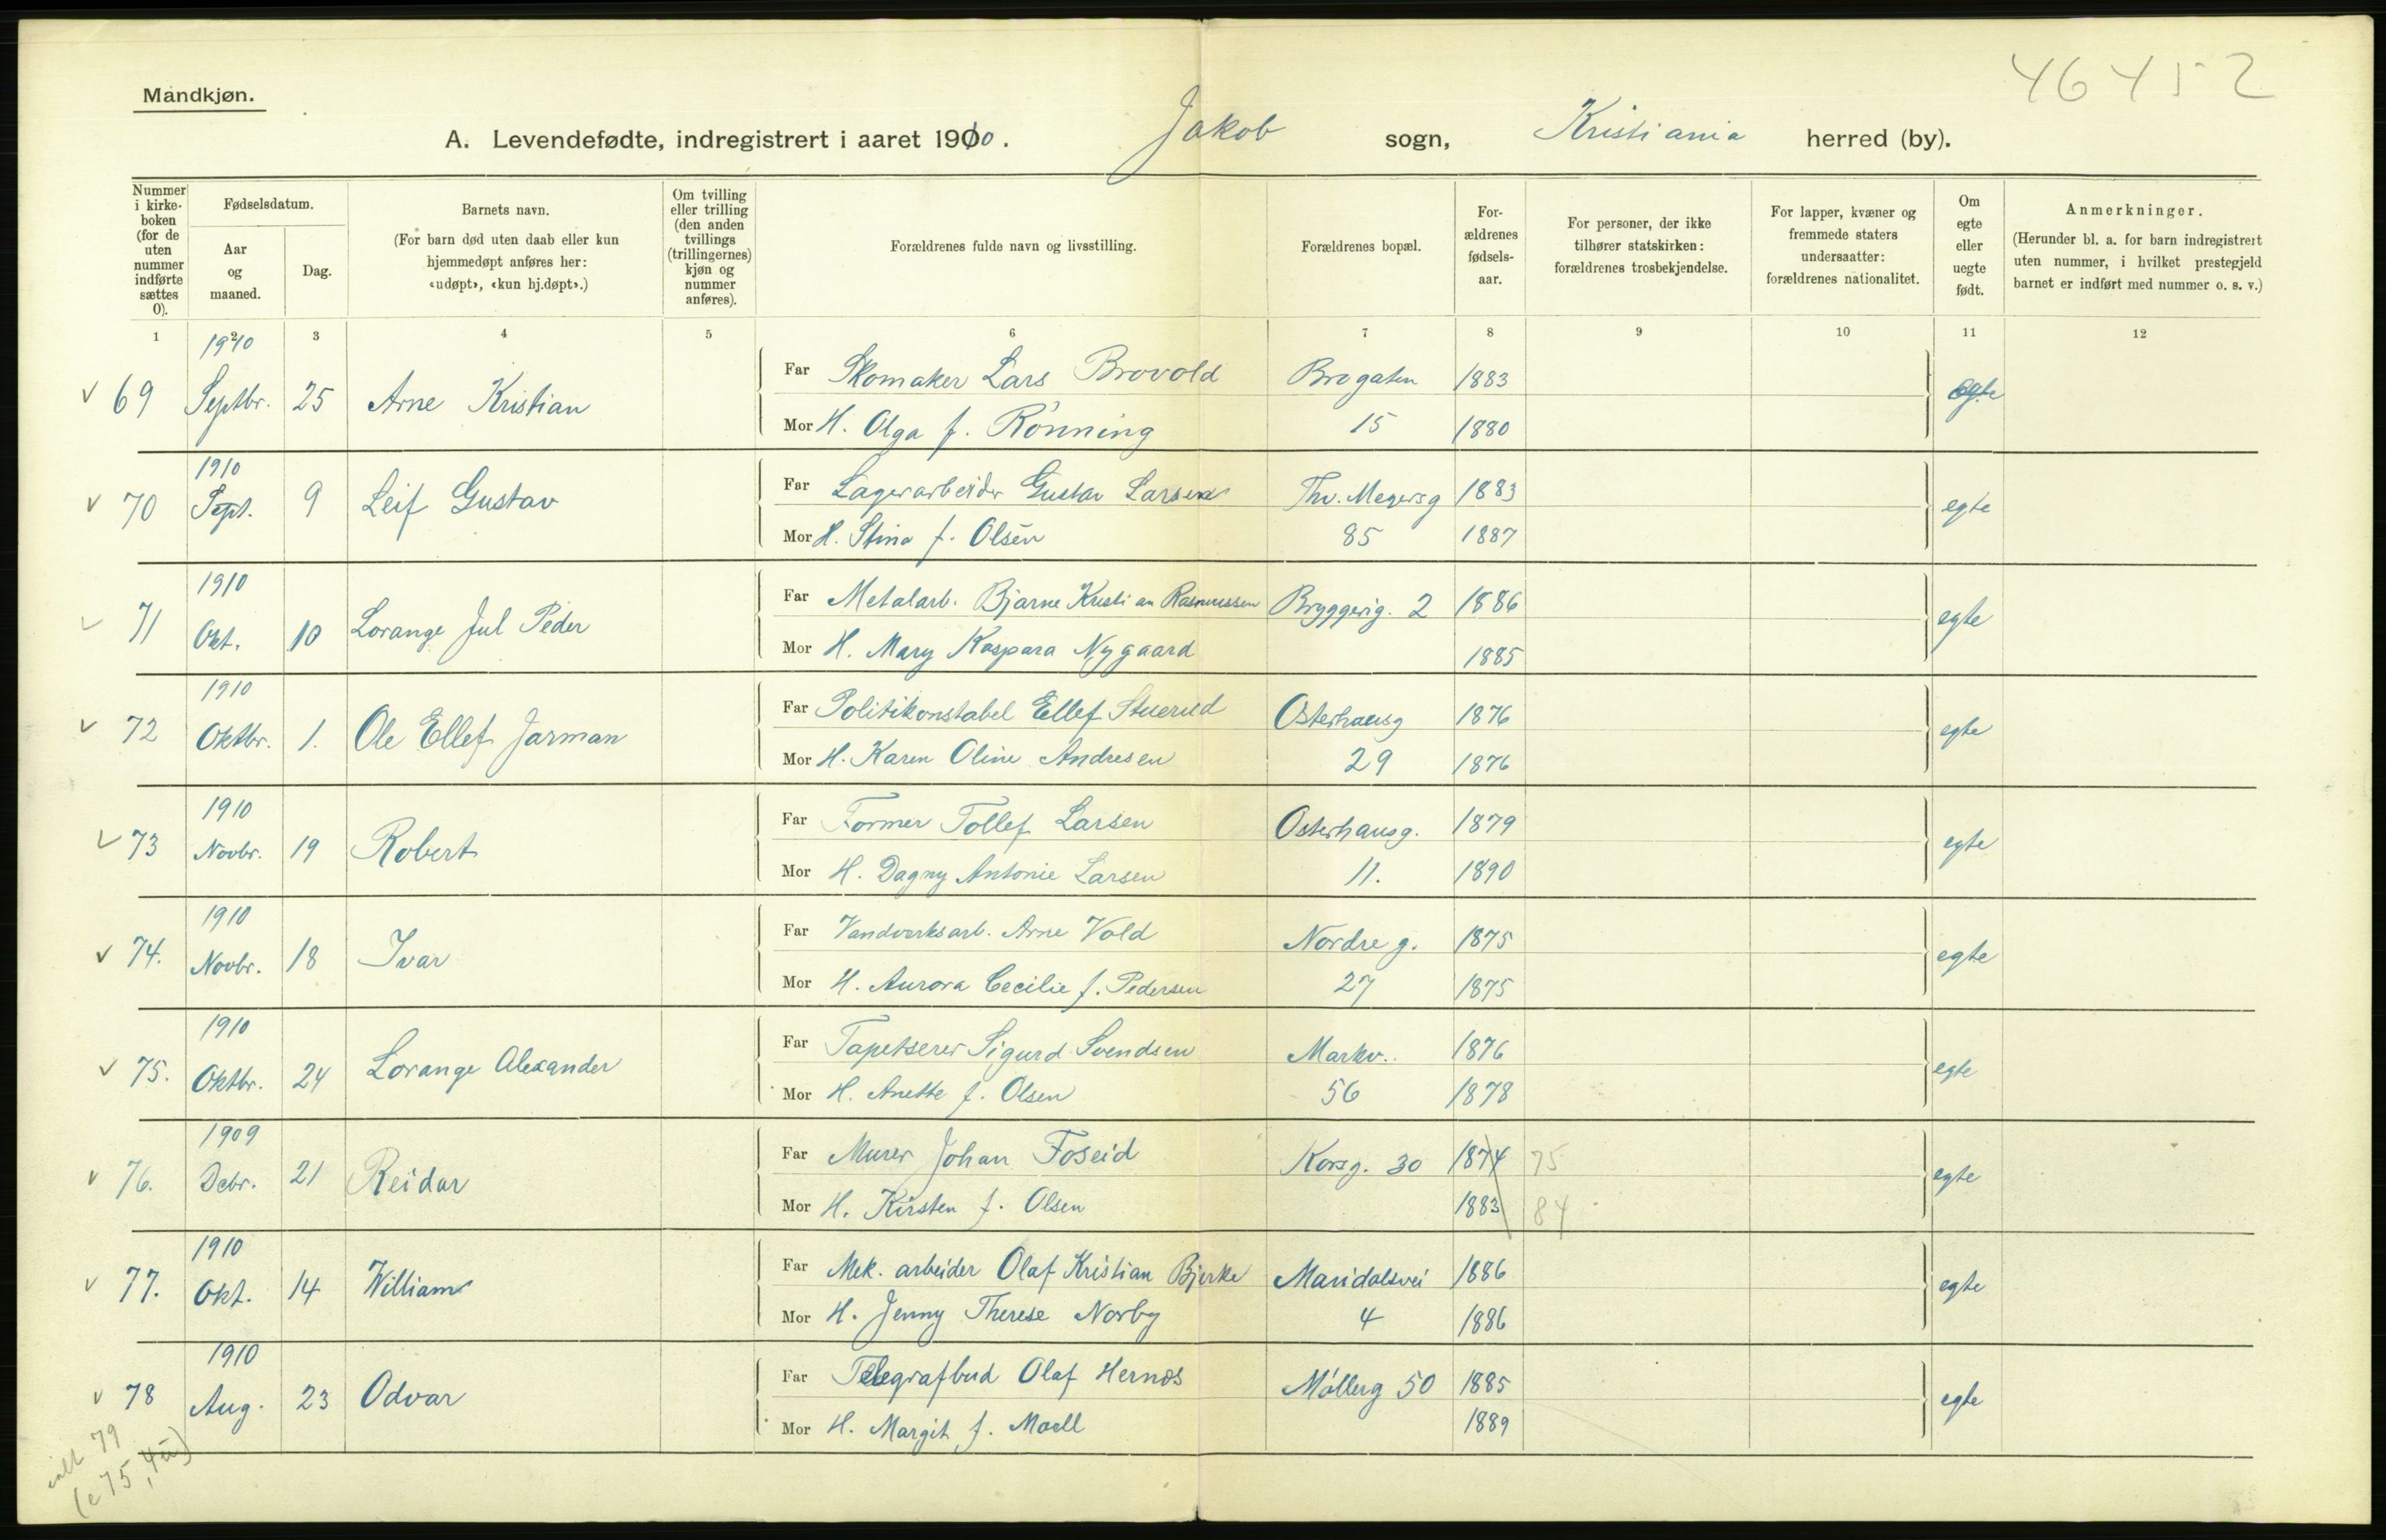 46452
Mandkjøn.
A. Levendefødte, indregistrert i aaret 1910. Jakob sogn, Kristiania herred (by).
Nummer i kirkeboken (for de uten nummer indførte sættes 0).
Fødselsdatum.
Aar og maaned.
Dag.
Barnets navn.
(For barn død uten daab eller kun hjemmedøpt anføres her: «udøpt», «kun hj.døpt».)
Om tvilling eller trilling (den anden tvillings (trillingernes) kjøn og nummer anføres).
Forældrenes fulde navn og livsstilling.
Forældrenes bopæl.
Forældrenes fødselsaar.
For personer, der ikke tilhører statskirken: forældrenes trosbekjendelse.
For lapper, kvæner og fremmede staters undersaatter: forældrenes nationalitet.
Om egte eller uegte født.
Anmerkninger.
(Herunder bl. a. for barn indregistrert uten nummer, i hvilket prestegjeld barnet er indført med nummer o. s. v.)
1 2 3 4 5 6 7 8 9 10 11 12
1910
69 Septbr. 25 Arne Kristian Far Skomaker Lars Brovold Brogaten 1883 egte
Mor H. Olga f. Rønning 15 1880
1910
70 Sept. 9 Leif Gustav Far Lagerarbeider Gustav Larsen Thv. Meyersg 1883 egte
Mor H. Stina f. Olsen 85 1887
1910
71 Okt. 10 Lorange Jul Peder Far Metalarb. Bjarne Kristian Rasmussen Bryggerig. 2 1886 egte
Mor H. Mary Kaspara Nygaard 1885
1910
72 Oktbr. 1. Ole Ellef Jarman Far Politikonstabel Ellef Stuerud Osterhausg 1876 egte
Mor H. Karen Oline Andresen 29 1876
1910
73 Novbr. 19 Robert Far Former Tollef Larsen Osterhausg. 1879 egte
Mor H. Dagny Antonie Larsen 11. 1890
1910
74. Novbr. 18 Ivar Far Vandverksarb. Arne Vold Nordre g. 1875 egte
Mor H. Aurora Cecilie f. Pedersen 27 1875
1910
75. Oktbr. 24 Lorange Alexander Far Tapetserer Sigurd Svendsen Markv. 1876 egte
Mor H. Anette f. Olsen 56 1878
1909
76. Debr. 21 Reidar Far Murer Johan Foseid Korsg. 30 1874 75 egte
Mor H. Kirsten f. Olsen 1883 84
1910
77. Okt. 14 William Far Mek. arbeider Olaf Kristian Bjerke Maridalsvei 1886 egte
Mor H. Jenny Therese Norby 4 1886
1910
78 Aug. 23 Odvar Far Telegrafbud Olaf Hernæs Møllerg 50 1885 egte
Mor H. Margit f. Moell 1889
ialt 79
(e 75, 4 u)